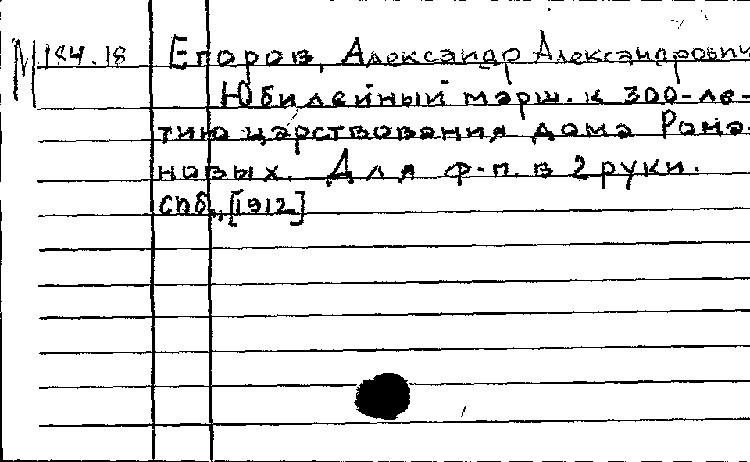 М 184.18 Егоров, Александр Александрович
Юбилейный марш. к 300-ле-
тию царствования дома Рома-
новых. Для ф-п. в 2 руки.
Спб., [1912]